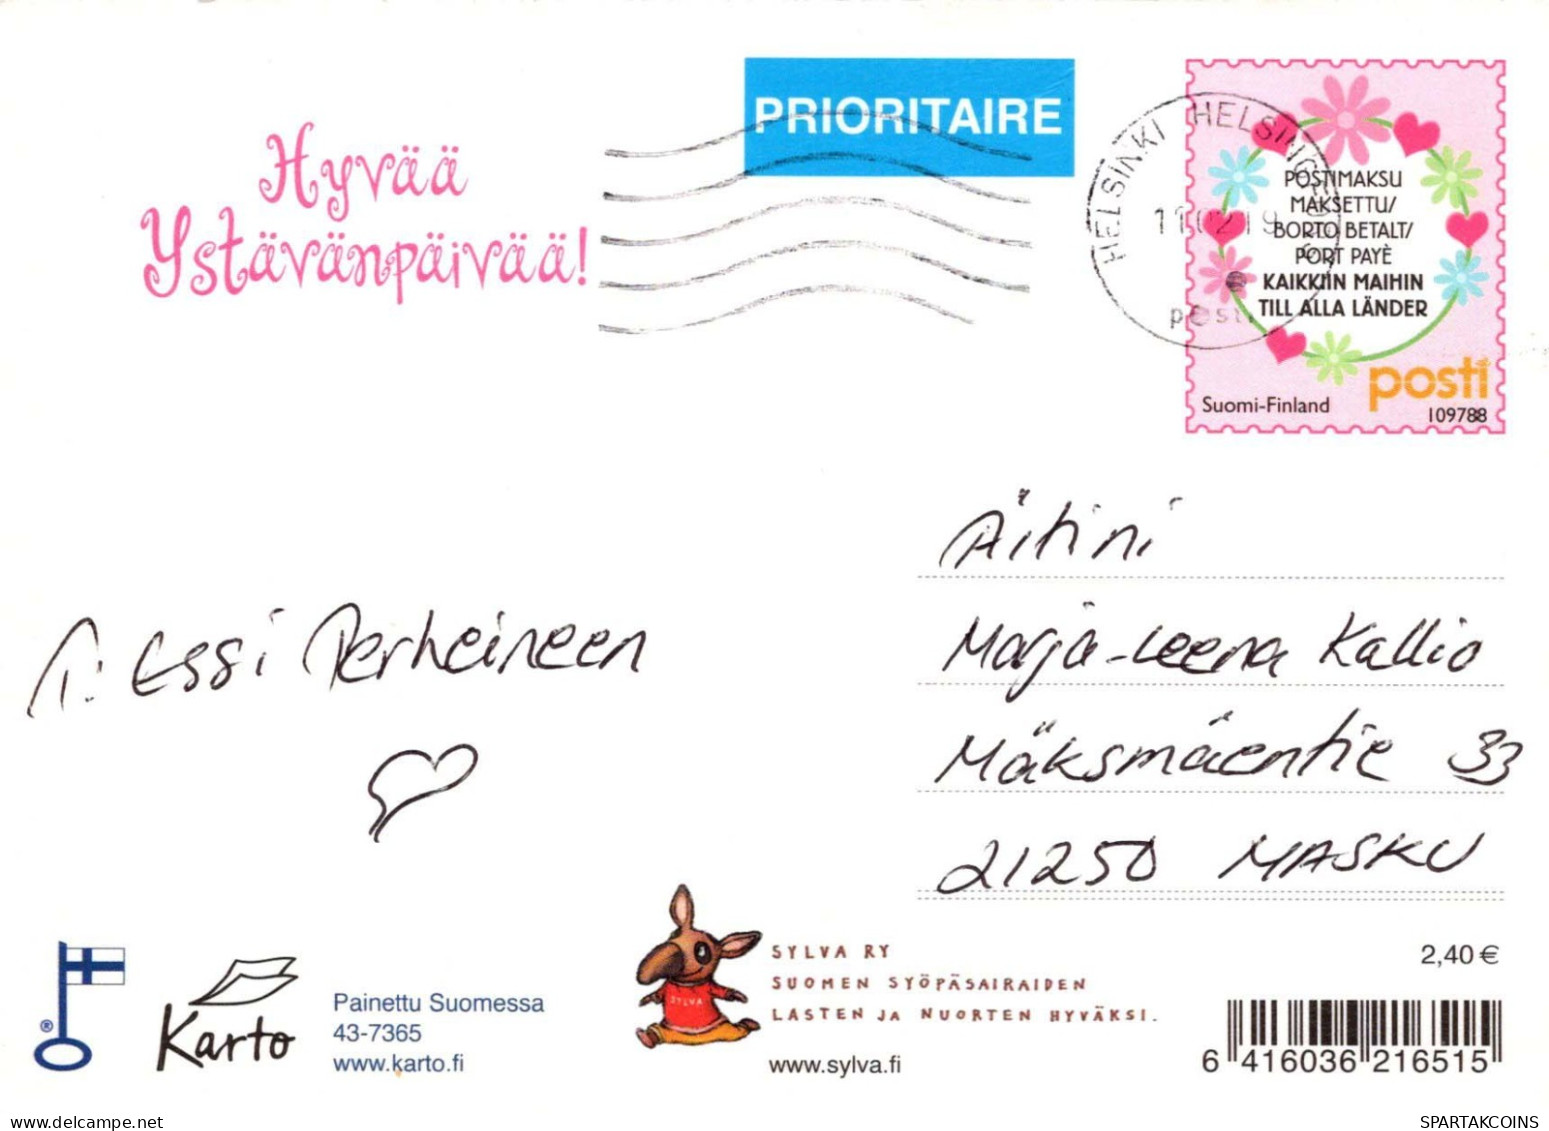 PRIORITAIRE
HELSINKI HELSINGFORS
11.02.19
posti
Hyvää
Ystävänpäivää!
POSTIMAKSU
MAKSETTU/
BORTO BETALT/
PORT PAYÈ
KAIKKIIN MAIHIN
TILL ALLA LÄNDER
posti
Suomi-Finland
109788
Äitini
Marja-Leena Kallio
Mäksmäentie 33
21250 MASKU
T: Essi Perheineen
Karto
Painettu Suomessa
43-7365
www.karto.fi
SYLVA
SYLVA RY
SUOMEN SYÖPÄSAIRAIDEN
LASTEN JA NUORTEN HYVÄKSI.
www.sylva.fi
2,40 €
6 416036 216515
SPARTAKCOINS